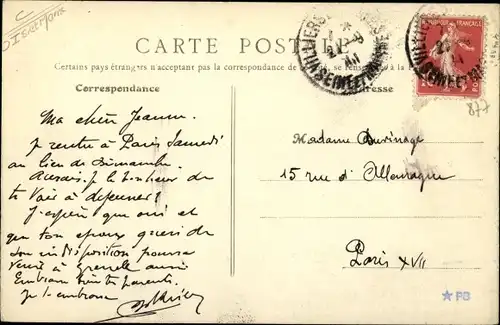 CARTE POSTALE
Certains pays étrangers n'acceptent pas la correspondance de
Correspondance
Adresse
Ma chère Jeanne.
Je rentre à Paris Samedi
au lieu de Dimanche
Aurais-je le bonheur de
te voir à déjeuner?
J'espère que oui et
que ton époux guéri de
son indisposition pourra
venir à Grenelle aussi
Embrasse bien tes parents.
Je t'embrasse
Madame
15 rue d'Allemagne
Paris XVII
877
★PB